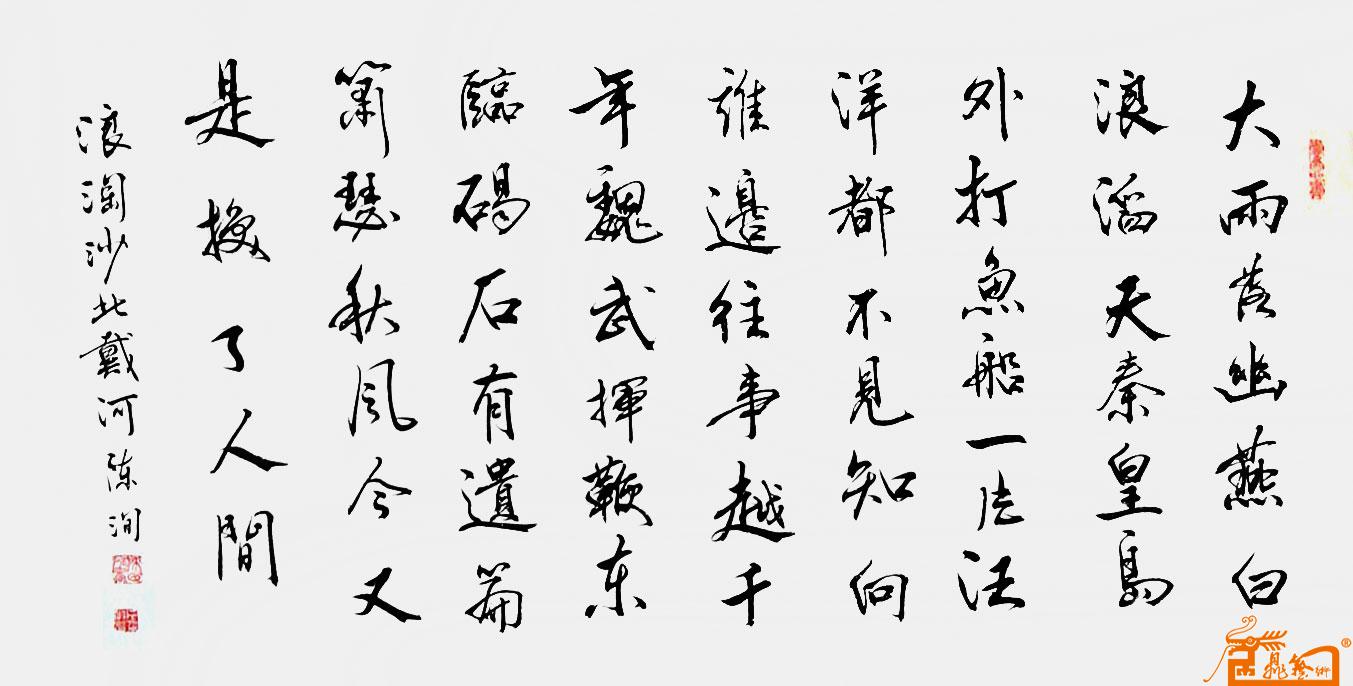 大雨落幽燕白
浪滔天秦皇島
外打魚船一片汪
洋都不見知向
誰邊往事越千
年魏武揮鞭东
臨碣石有遺篇
簫瑟秋風今又
是換了人間
浪淘沙北戴河陈洵